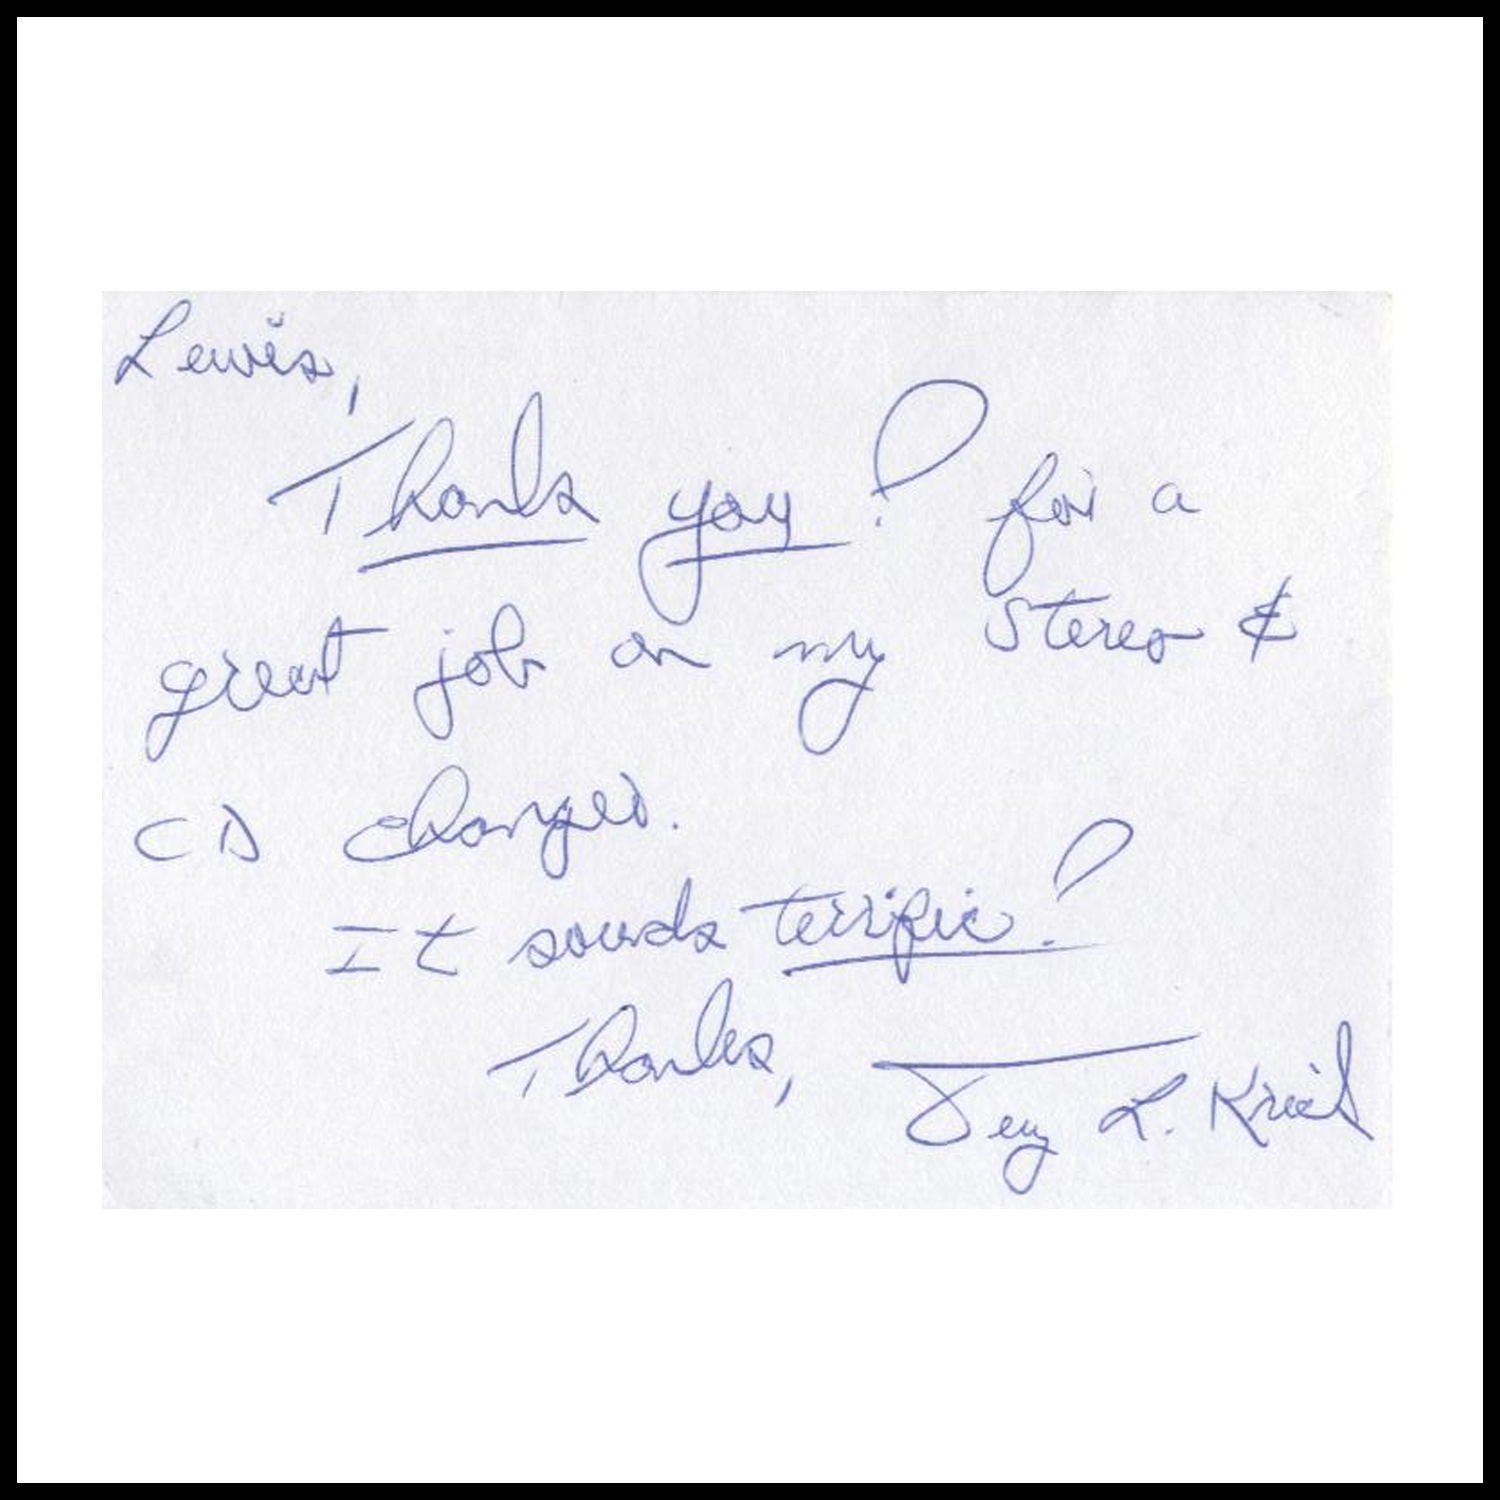 Lewis,
Thanks you! for a
great job on my stereo &
CD changer.
It sounds terrific!
Thanks,
L.